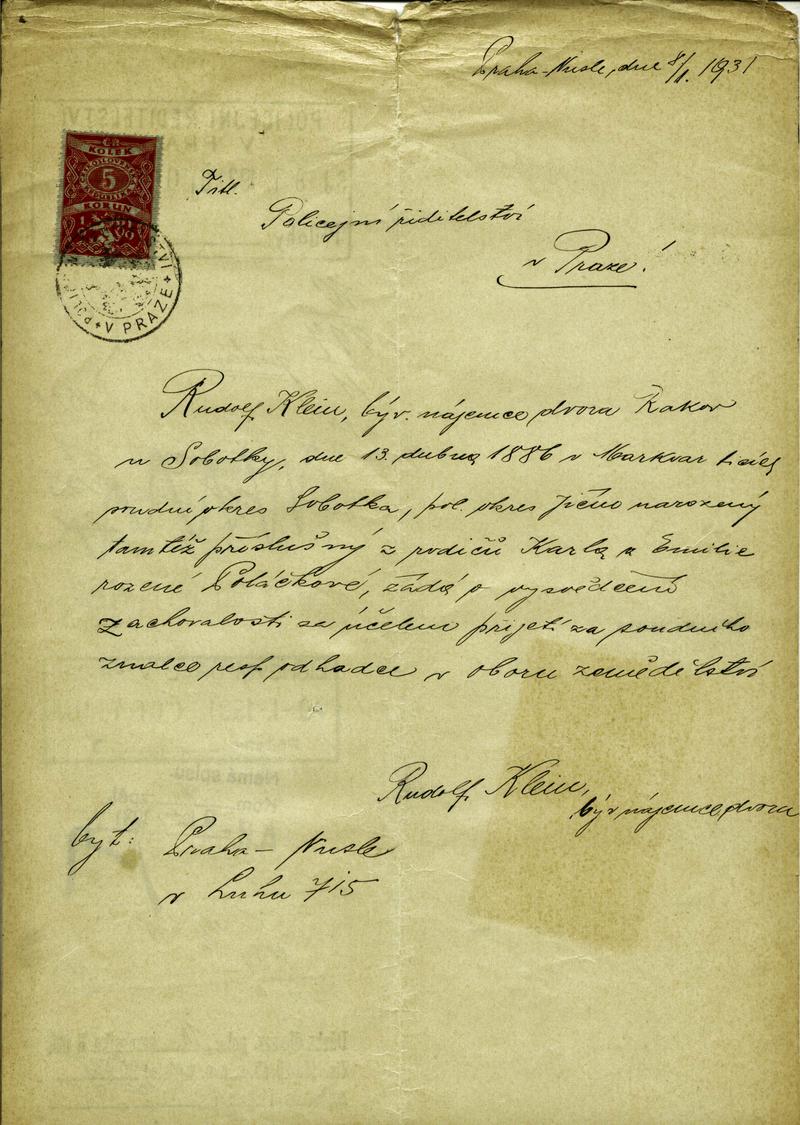 Praha-Nusle, dne 8/1. 1931
KOLEK
5
KORUN
V PRAZE
Titl.
Policejní řiditelství
v Praze!
Rudolf Klein, býv. nájemce dvora Rakov
u Sobotky, dne 13. dubna 1886 v Markvar ticích
soudní okres Sobotka, pol. okres Jičín narozený
tamtéž příslušný z rodičů Karla a Emilie
rozené Poláčkové, žádá o vysvědčení
zachovalosti za účelem prijetí za soudního
znalce resp. odhadce v oboru zemědělství
Rudolf Klein,
býv nájemce dvora
byt: Praha- Nusle
v Luhu 715